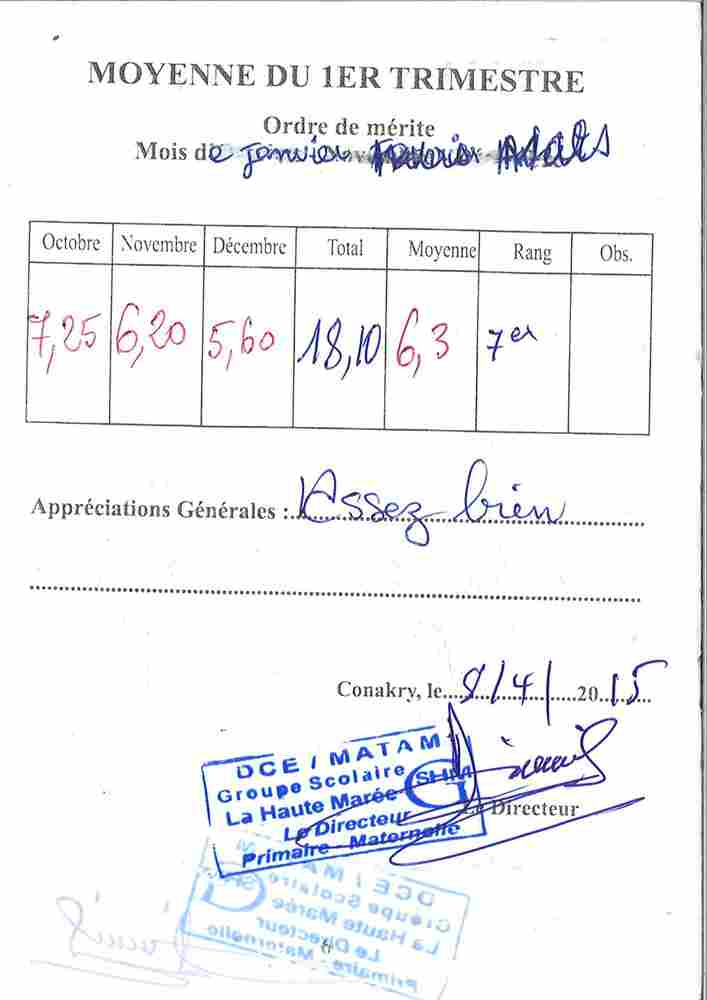 MOYENNE DU 1ER TRIMESTRE
Ordre de mérite
Mois de janvier
Octobre Novembre Décembre Total Moyenne Rang Obs.
7,25 6,20 5,60 18,10 6,3 7er
Appréciations Générales : Assez bien
Conakry, le 8/4/2015
DCE / MATAM
Groupe Scolaire SHM
La Haute Marée
Le Directeur
Le Directeur
Primaire - Maternelle
DCE / MATAM
Groupe Scolaire
La Haute Marée
Le Directeur
Primaire - Maternelle